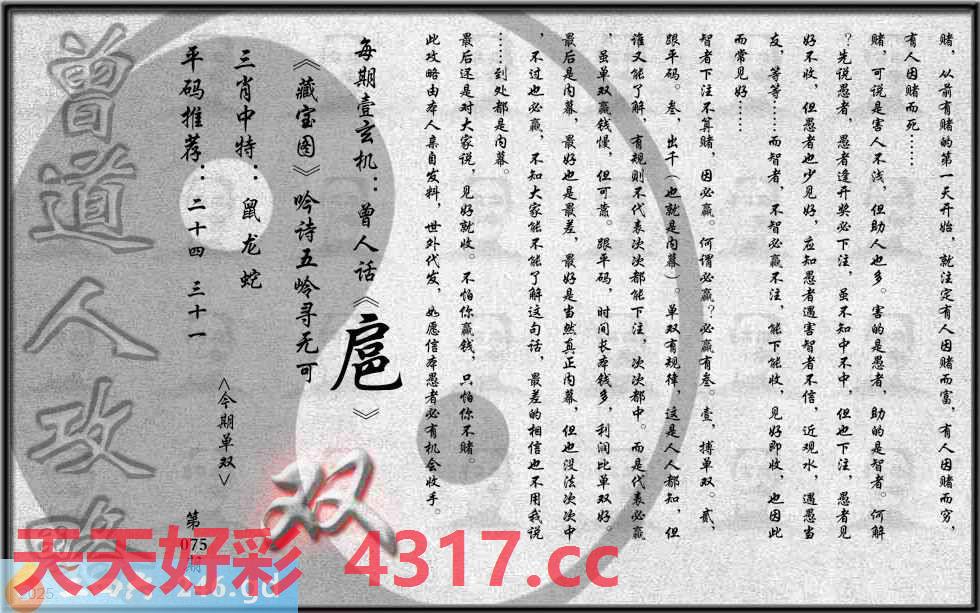 赌，从前有赌的第一天开始，就注定有人因赌而富，有人因赌而穷，
有人因赌而死……
赌，可说是害人不浅，但助人也多。害的是愚者，助的是智者。何解
？先说愚者，愚者逢开奖必下注，虽不知中不中，但也下注，愚者见
好不收，但愚者也少见好，应知愚者遇害智者不信，近观水，遇愚当
友，等等……而智者，不智必赢不注，能下能收，见好即收，也因此
而常见好……
智者下注不算赌，因必赢。何谓必赢？必赢有叁。壹，搏单双。贰，
跟平码。叁，出千（也就是内幕）。单双有规律，这是人人都知，但
谁又能了解，有规则不代表次次都能下注，次次都中。而是代表必赢
，虽单双赢钱慢，但可靠。跟平码，时间长本钱多，利润比单双好。
最后是内幕，最好也是最差，最好是当然真正内幕，但也没法次次中
，不过也必赢，不知大家能不能了解这句话，最差的相信也不用我说
……到处都是内幕。
最后还是对大家说，见好就收。不怕你赢钱，只怕你不赌。
此攻略由本人亲自发料，世外代发，如愿信本愚者必有机会收手。
每期壹玄机：曾人话《扈》
《藏宝图》吟诗五岭寻无可
三肖中特：鼠龙蛇
平码推荐：二十四 三十一
<今期单双>
双
第
075
期
曾道人攻略
天天好彩 4317.cc
2025
246.gd